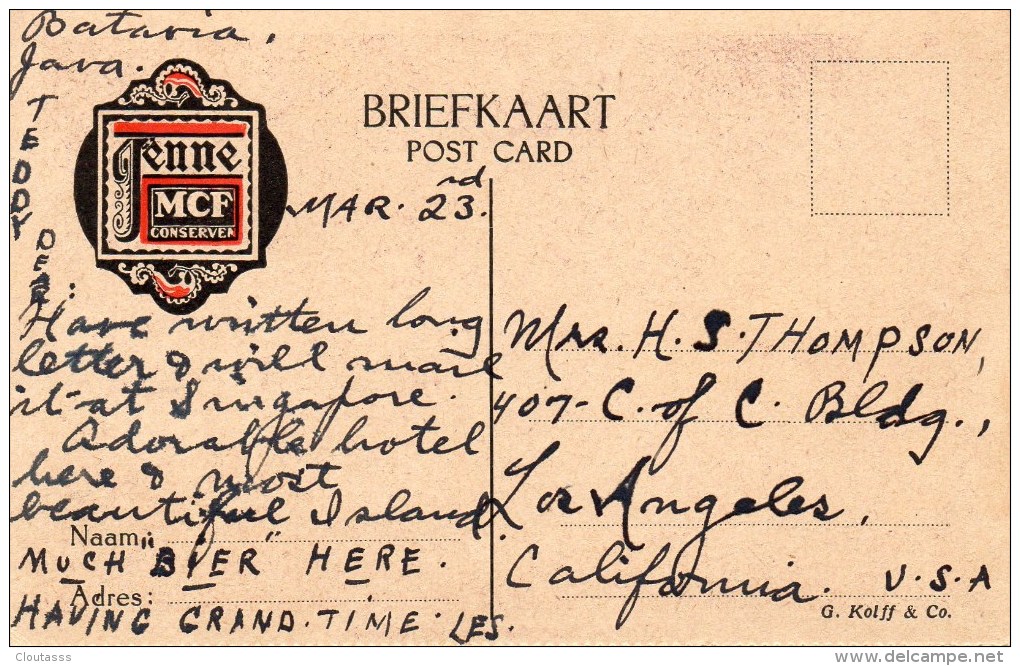 Batavia,
Java.
TEDDY
DEAR:
Tenne
MCF
CONSERVEN
BRIEFKAART
POST CARD
MAR. 23rd.
Have written long
letter & will mail
it at Singapore.
Adorable hotel
here & most
beautiful Island.
Naam:
MUCH "BIER" HERE.
Adres:
HAVING GRAND. TIME. LES.
MRS. H. S. THOMPSON,
407-C. of C. Bldg.,
Los Angeles,
California. U.S.A
G. Kolff & Co.
Cloutasss
delcampe.net